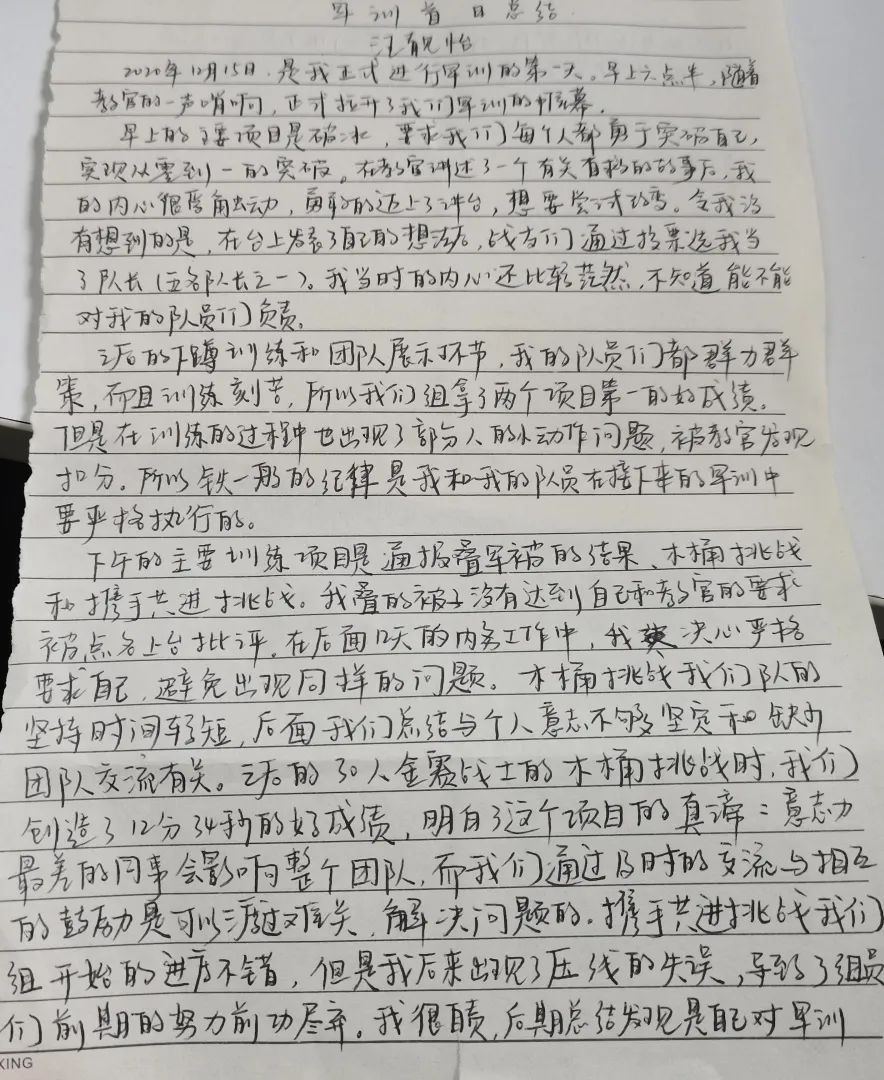 军训首日总结
汪靓怡
2020年12月15日，是我正式进行军训的第一天。早上六点半，随着
教官的一声哨响，正式拉开了我们军训的帷幕。
早上的主要项目是破冰，要求我们每个人都勇于突破自己，
实现从零到一的突破。在教官讲述了一个有关有挑的故事后，我
的内心很受触动，勇敢的迈上了讲台，想要尝试改变。令我没
有想到的是，在台上发表了自己的想法后，战友们通过投票选我当
了队长（五名队长之一）。我当时的内心还比较茫然，不知道能不能
对我的队员们负责。
之后的下蹲训练和团队展示环节，我的队员们都群力群
策，而且训练刻苦，所以我们组拿了两个项目第一的好成绩。
但是在训练的过程中也出现了部分人的小动作问题，被教官发现
扣分。所以铁一般的纪律是我和我的队员在接下来的军训中
要严格执行的。
下午的主要训练项目是通报叠军被的结果、木桶挑战
和携手共进挑战。我叠的被子没有达到自己和教官的要求
被点名上台批评。在后面12天的内务工作中，我决心严格
要求自己，避免出现同样的问题。木桶挑战我们队的
坚持时间较短，后面我们总结与个人意志不够坚定和缺少
团队交流有关。之后的30人金赛战士的木桶挑战时，我们
创造了12分34秒的好成绩，明白了这个项目的真谛：意志力
最差的同事会影响整个团队，而我们通过及时的交流与相互
的鼓励是可以渡过难关，解决问题的。携手共进挑战我们
组开始的进度不错，但是我后来出现了压线的失误，导致了组员
们前期的努力前功尽弃。我很自责，后期总结发现是自己对军训
KING